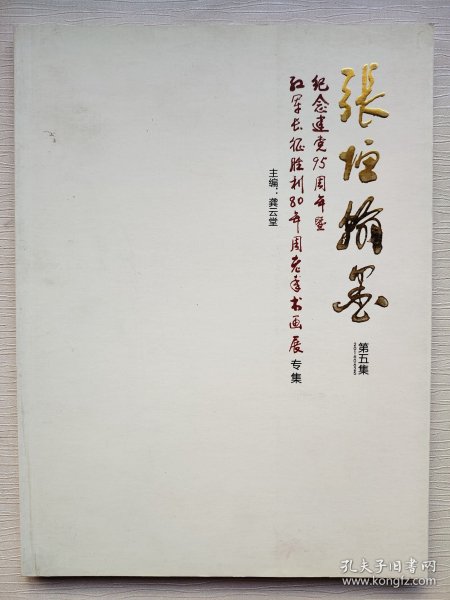 張垣翰墨
第五集
纪念建党95周年暨
红军长征胜利80年周老年书画展 专集
主编：龚云堂
孔夫子旧书网
www.kongfz.com